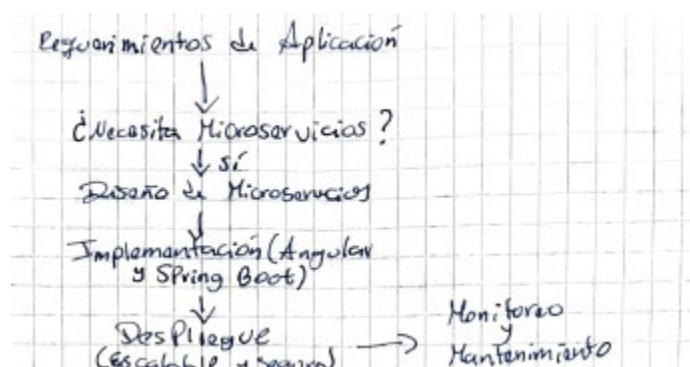 Requerimientos de Aplicación
¿Necesita Microservicios?
sí
Diseño de Microservicios
Implementación (Angular
y Spring Boot)
Despliegue
(escalable y seguro)
Monitoreo
y
Mantenimiento